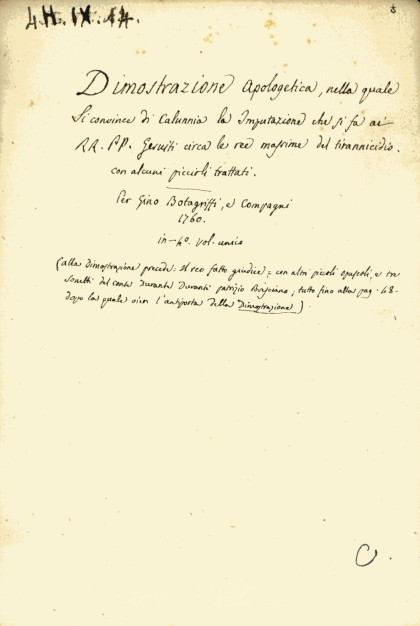 4 H. IX. 14.
Dimostrazione Apologetica, nella quale
si convince di Calunnia la Imputazione che si fa ai
RR. PP. Gesuiti circa le ree massime del tirannicidio.
con alcuni piccioli trattati.
Per Gino Botagriffi, e Compagni
1760.
in-4º. vol. unico
(alla dimostrazione precede: Il reo fatto giudice; con altri piccoli opuscoli, e tre
sonetti del conte Durante Duranti patrizio Bresciano; tutto fino alla pag. 48-
dopo la quale vien l'antiporta della Dimostrazione)